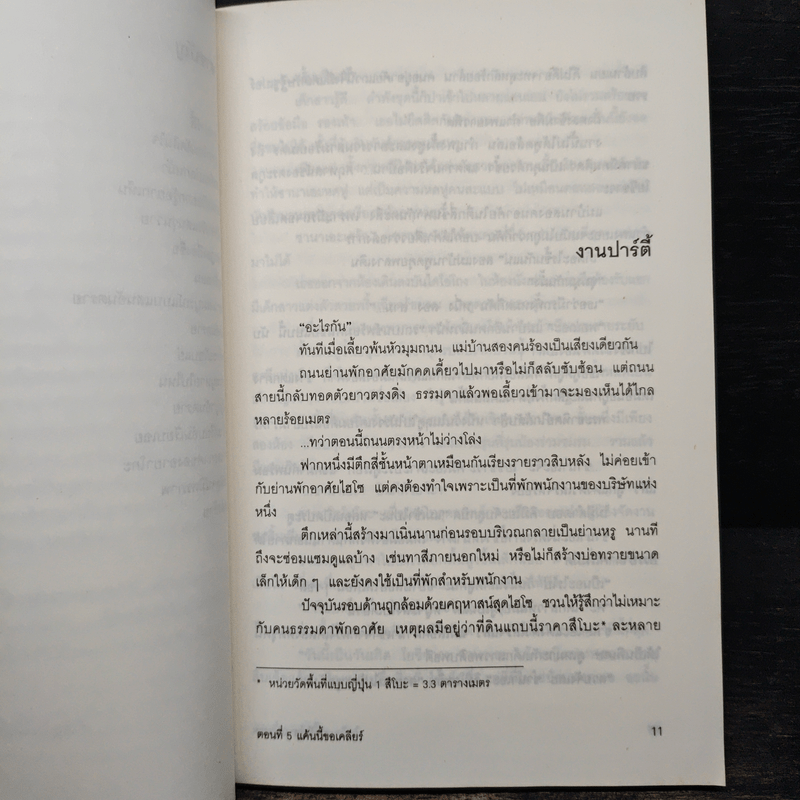 งานปาร์ตี้
“อะไรกัน”
ทันทีเมื่อเลี้ยวพ้นหัวมุมถนน แม่บ้านสองคนร้องเป็นเสียงเดียวกัน
ถนนย่านพักอาศัยมักคดเคี้ยวไปมาหรือไม่ก็สลับซับซ้อน แต่ถนน
สายนี้กลับทอดตัวยาวตรงดิ่ง ธรรมดาแล้วพอเลี้ยวเข้ามาจะมองเห็นได้ไกล
หลายร้อยเมตร
...ทว่าตอนนี้ถนนตรงหน้าไม่ว่างโล่ง
ฟากหนึ่งมีตึกสี่ชั้นหน้าตาเหมือนกันเรียงรายราวสิบหลัง ไม่ค่อยเข้า
กับย่านพักอาศัยไฮโซ แต่คงต้องทำใจเพราะเป็นที่พักพนักงานของบริษัทแห่ง
หนึ่ง
ตึกเหล่านี้สร้างมาเนิ่นนานก่อนรอบบริเวณกลายเป็นย่านหรู นานที
ถึงจะซ่อมแซมดูแลบ้าง เช่นทาสีภายนอกใหม่ หรือไม่ก็สร้างบ่อทรายขนาด
เล็กให้เด็ก ๆ และยังคงใช้เป็นที่พักสำหรับพนักงาน
ปัจจุบันรอบด้านถูกล้อมด้วยคฤหาสน์สุดไฮโซ ชวนให้รู้สึกว่าไม่เหมาะ
กับคนธรรมดาพักอาศัย เหตุผลมีอยู่ว่าที่ดินแถบนี้ราคาสึโบะ* ละหลาย
* หน่วยวัดพื้นที่แบบญี่ปุ่น 1 สึโบะ = 3.3 ตารางเมตร
ตอนที่ 5 แค้นนี้ขอเคลียร์ 11